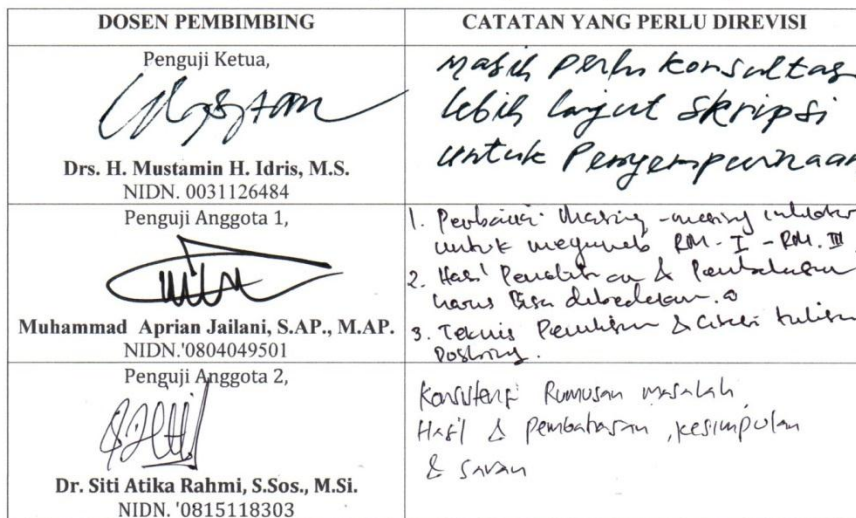 DOSEN PEMBIMBING
CATATAN YANG PERLU DIREVISI
Penguji Ketua,
Drs. H. Mustamin H. Idris, M.S.
NIDN. 0031126484
Masih perlu konsultasi
lebih lanjut skripsi
untuk Penyempurnaan
Penguji Anggota 1,
Muhammad Aprian Jailani, S.AP., M.AP.
NIDN.'0804049501
1. Perbaiki masing-masing indikator
untuk RM-I-RM.III
2. Hasil Penelitian & Pembahasan
harus bisa dibedakan.
3. Teknis Penulisan &
Penguji Anggota 2,
Dr. Siti Atika Rahmi, S.Sos., M.Si.
NIDN. '0815118303
Konsistensi Rumusan masalah,
Hasil & pembahasan, kesimpulan
& saran